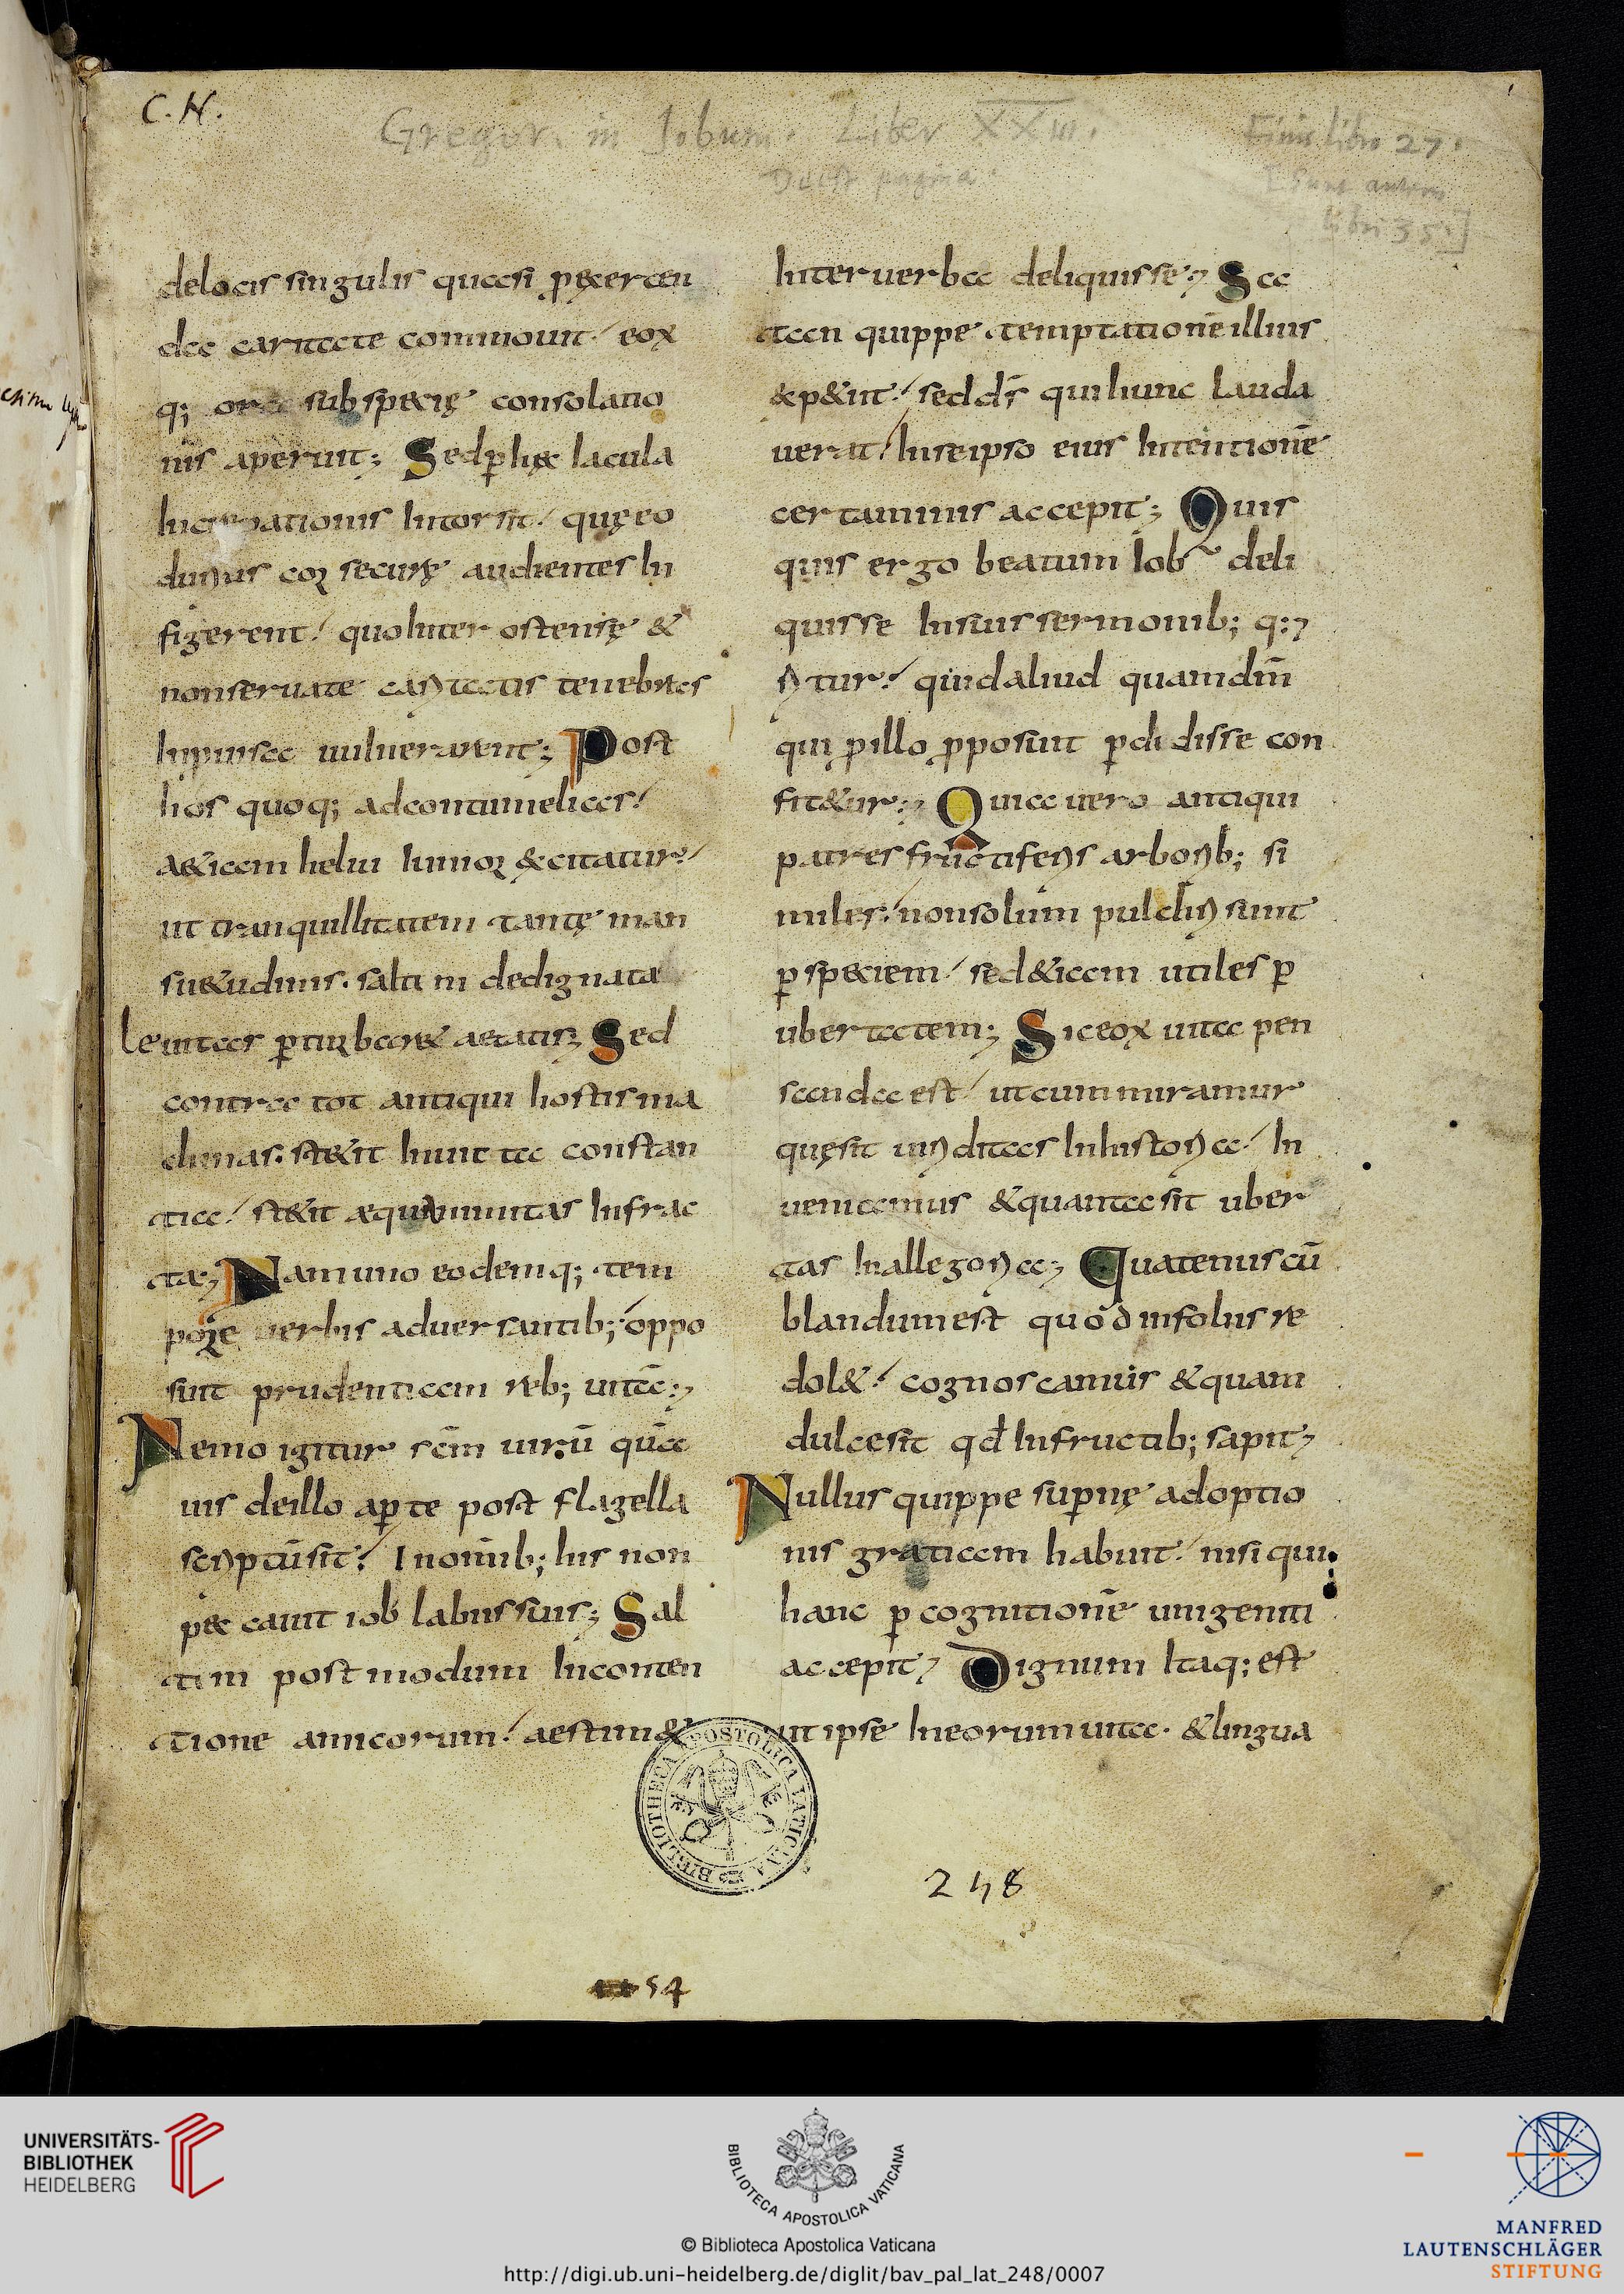 C. N.
Gregor. in Jobum. Liber XXIII.
Deest pagina.
Finis libro 27.
[sunt autem
libri 35.]
de locis singulis quasi p exercen
da caritate commouit. eoꝝ
q; ora sub specię consolatio
nis aperuit; Sed ꝑ hęc iacula
increpationis intorsit. quę eo
durius cor securę audientes in
figerent. quo inter ostensę &
non seruate caritatis tenebras
inpuisa uulnerarent; Post
hos quoq; ad contumelias.
a&iam heliu iunior excitatur.
ut tranquillitatem tantę man
su&udinis. saltim dedignata
leuitas ꝑturbar& aetatis; Sed
contra tot antiqui hostis ma
chinas. st&it inuicta constan
tia. st&it aequanimitas infrac
ta; Nam uno eodemq; tem
pore uerbis aduersantib; oppo
suit prudentiam reb; uitā;
Nemo igitur scm̄ uirū quā
uis de illo aꝑte post flagella
scriptū sit. In omib; his non
pec cauit iob labiis suis; Sal
tim postmodum in conten
tione amicorum. aestim&
inter uerba deliquisse; Sa
tan quippe temptationē illius
&p&iit. sed ds̄ qui hunc lauda
uerat. in se ipso eius intentionē
certaminis accepit; Quis
quis ergo beatum iob deli
quisse in suis sermonib; q:
ritur. quid aliud quam dnm̄
qui p illo pposuit ꝑdidisse con
fit&ur; Quia uero antiqui
patres fructiferis arborib; si
miles. non solum pulchri sunt
ꝑ speciem. sed &iam utiles ꝑ
ubertatem; Sic eoꝝ uita pen
sanda est. ut cum miramur
quę sit uiriditas in historia. in
ueniamus & quanta sit uber
tas in allegoria; Quatenus cū
blandum est quod in foliis re
dol&. cognoscamus & quam
dulce sit qđ in fructib; sapit;
Nullus quippe supnę adoptio
nis gratiam habuit. nisi qui
hanc ꝑ cognitionē unigeniti
accepit; Dignum itaq; est
ut ipse in eorum uita. & lingua
BIBLIOTHECA APOSTOLICA VATICANA
248
54
UNIVERSITÄTS-
BIBLIOTHEK
HEIDELBERG
BIBLIOTECA APOSTOLICA VATICANA
© Biblioteca Apostolica Vaticana
http://digi.ub.uni-heidelberg.de/diglit/bav_pal_lat_248/0007
MANFRED
LAUTENSCHLÄGER
STIFTUNG